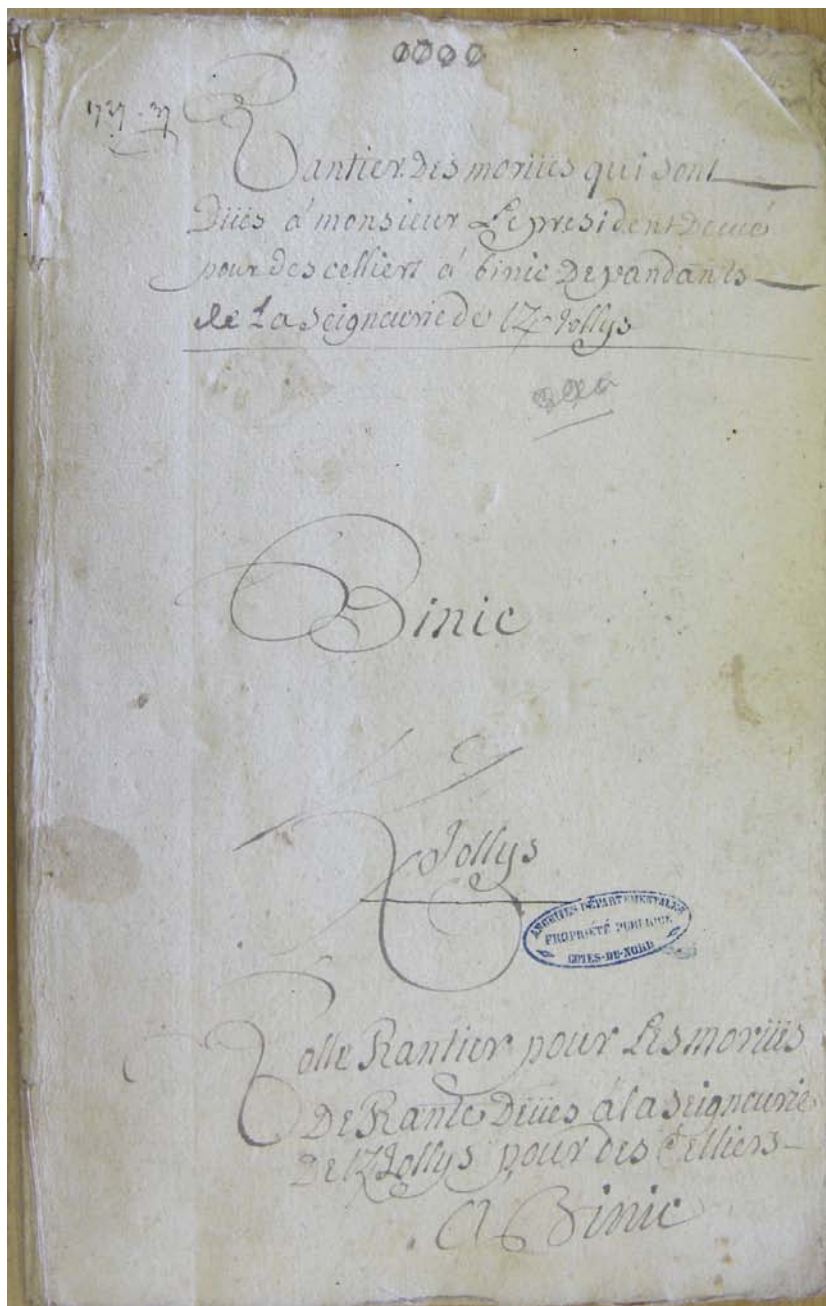 1727 - 37
Rantier Des moriiës qui sont
Diiës a monsieur Le president
pour des celliers a binic Depandants
de La Seigneurie de Jollys
Binic
Jollys
ARCHIVES DÉPARTEMENTALES
PROPRIÉTÉ PUBLIQUE
COTES-DU-NORD
Rolle Rantier pour Les moriiës
De Rante Deiies a la Seigneurie
De Jollys pour des Celliers
A Binic